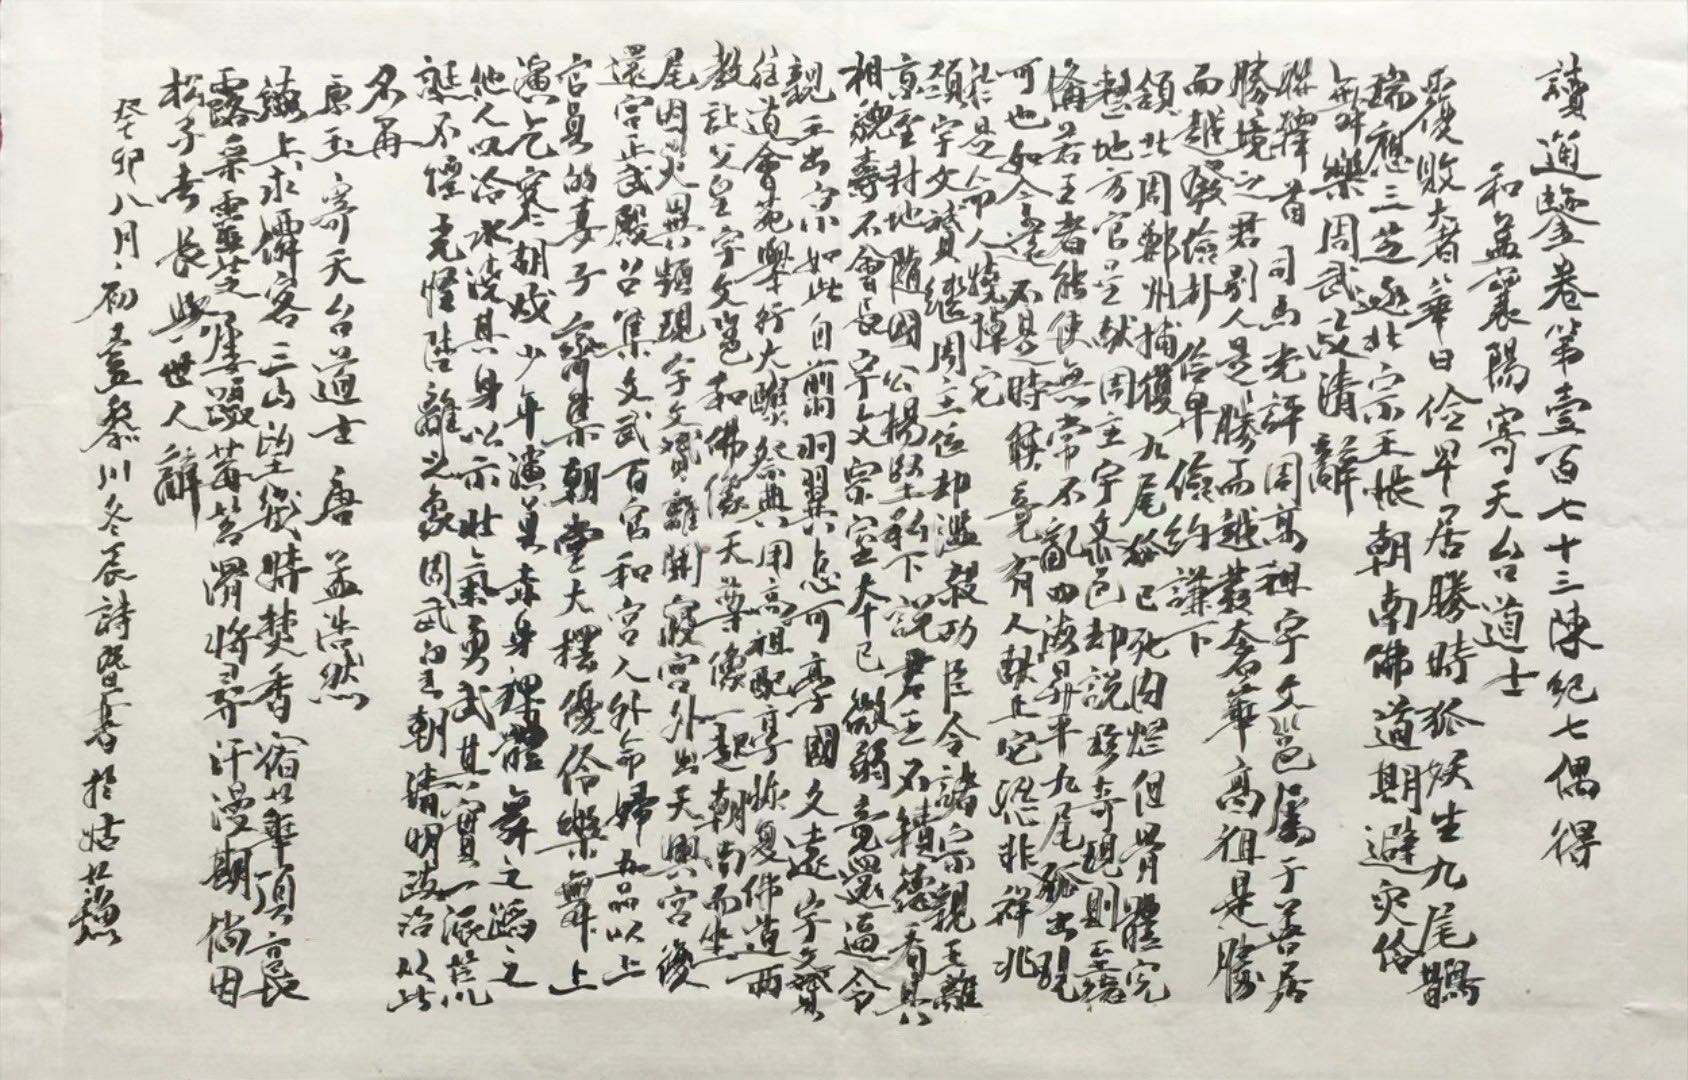 讀通鑒卷第壹百七十三陳紀七偶得
和孟襄陽寄天台道士
覆敗大着華日儉卑居勝時狐妖生九尾鵲
瑞應三芝逐北宗王悵朝南佛道期避灾伶
舞樂周武政清辭
聯繹首司馬光評周高祖宇文邕屬于善居
勝境之君別人是勝而越發奢華高祖是勝
而越發儉朴伶卑儉約謙下
頷北周鄭州捕獲九尾狐已死肉烂但骨體完
整地方官呈献周主宇文邕却説珍奇現則至德
脩若王者能使無常不亂四海昇平九尾狐出現
可也如今還不是時候竟有人献上它恐非祥兆
於是命人燒掉它
頸宇文贇繼周主位却濫殺功臣令諸宗親王離
京至封地隨國公楊堅私下説君王不積德看其
相貌壽不會長宇文宗室本已微弱竟還逼令
親王出京如此自剪羽翼怎可享國久遠宇文贇
往道會苑舉行大醮祭典用高祖配享恢复佛道两
教讓父皇宇文邕和佛像天尊像一起朝南而坐
尾因灾異頻現宇文贇離開寢宮外出天興宮後
還宮正武殿召集文武百官和宮人外命婦五品以上
官員的妻子齊集朝堂大擺優伶樂舞上
演乞寒胡戏少年演員赤身裸體舞之蹈之
他人以冷水澆其身以示壯氣勇武其實一派荒
誕不經光怪陸離之象周武皇朝清明政治從此
不再
原玉寄天台道士唐孟浩然
海上求僊客三山望幾時焚香宿華頂裛
露采靈芝屢躡莓苔滑將尋汗漫期倘因
松子去長與世人辭
癸卯八月初壹黎川冬辰詩暨書於姑蘇